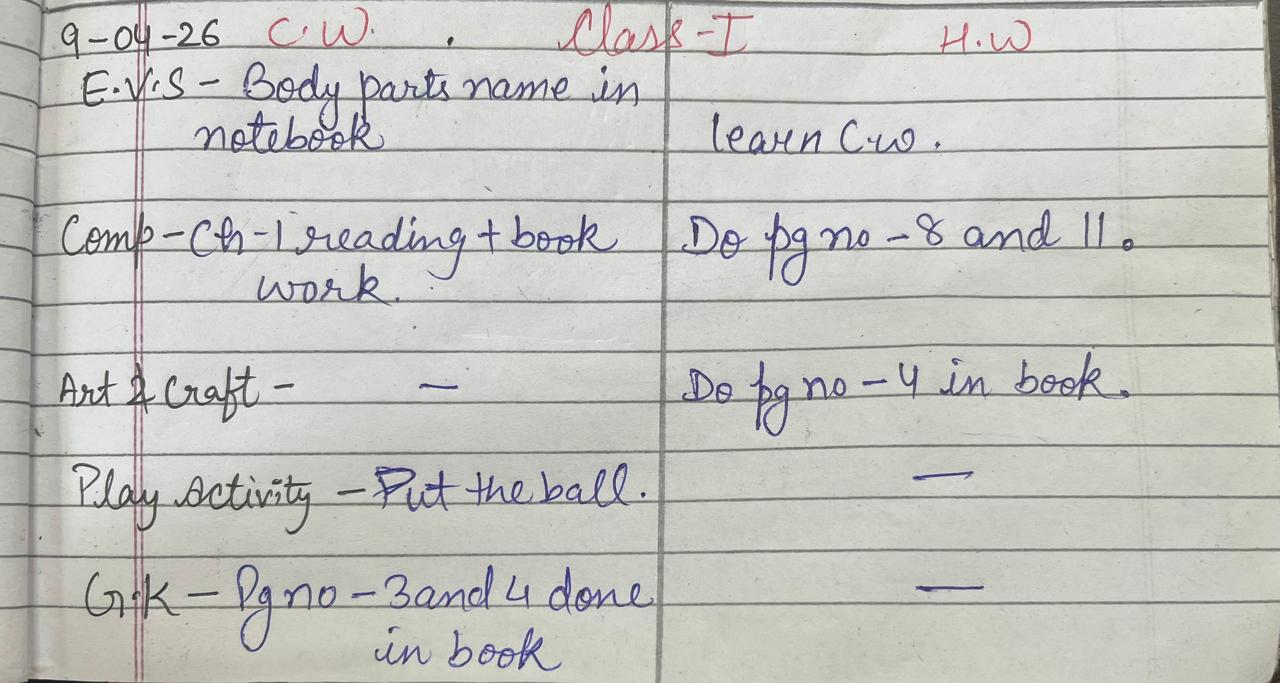 9-04-26 C.W. Class-I H.W
E.V.S - Body parts name in
notebook learn C.w.
Comp - Ch-1 reading + book Do pg no - 8 and 11.
work.
Art & Craft - — Do pg no - 4 in book.
Play Activity - Put the ball. —
G.K - Pg no - 3 and 4 done —
in book